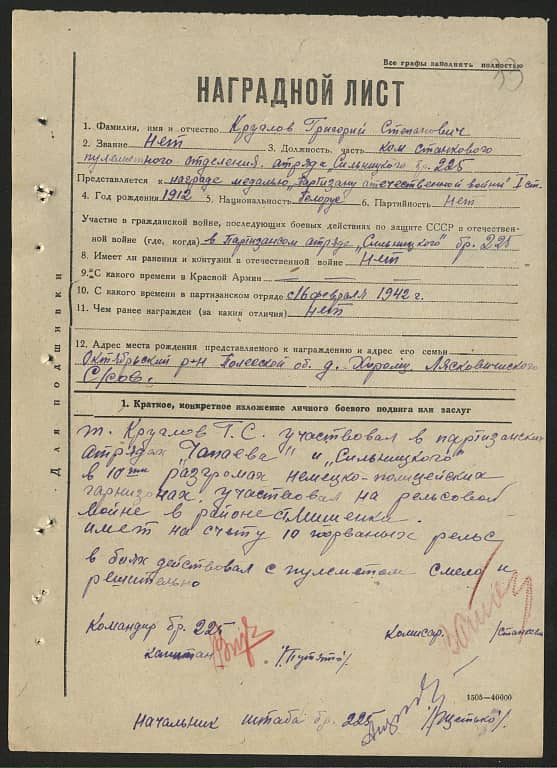 Все графы заполнять полностью
33
НАГРАДНОЙ ЛИСТ
1. Фамилия, имя и отчество Крузалов Григорий Степанович
2. Звание Нет 3. Должность, часть ком станкового
пулеметного отделения, отряда Сильницкого бр. 225
Представляется к награде медалью "Партизану отечественной войны" I ст.
4. Год рождения 1912 5. Национальность белорус 6. Партийность Нет
Участие в гражданской войне, последующих боевых действиях по защите СССР и отечествен-
ной войне (где, когда) в Партизанском отряде "Сильницкого" бр. 225
8. Имеет ли ранения и контузии в отечественной войне Нет
9. С какого времени в Красной Армии —
10. С какого времени в партизанском отряде с 16 февраля 1942 г.
11. Чем ранее награжден (за какия отличия) Нет
12. Адрес места рождения представляемого к награждению и адрес его семьи
Октябрьский р-н Полесской об. д. Лясковичского
С/сов.
Для подшивки
1. Краткое, конкретное изложение личного боевого подвига или заслуг
т. Крузалов Г.С. участвовал в партизанских
отрядах "Чапаева" и "Сильницкого"
в 10-ти разгромах немецко-полицейских
гарнизонах, участвовал на рельсовой
войне в районе
имеет на счету 10 подорванных рельс
в боях действовал с пулеметом смело и
решительно
Командир бр. 225 Комисар.
капитан /Путято/
1505—40000
Начальник штаба бр. 225